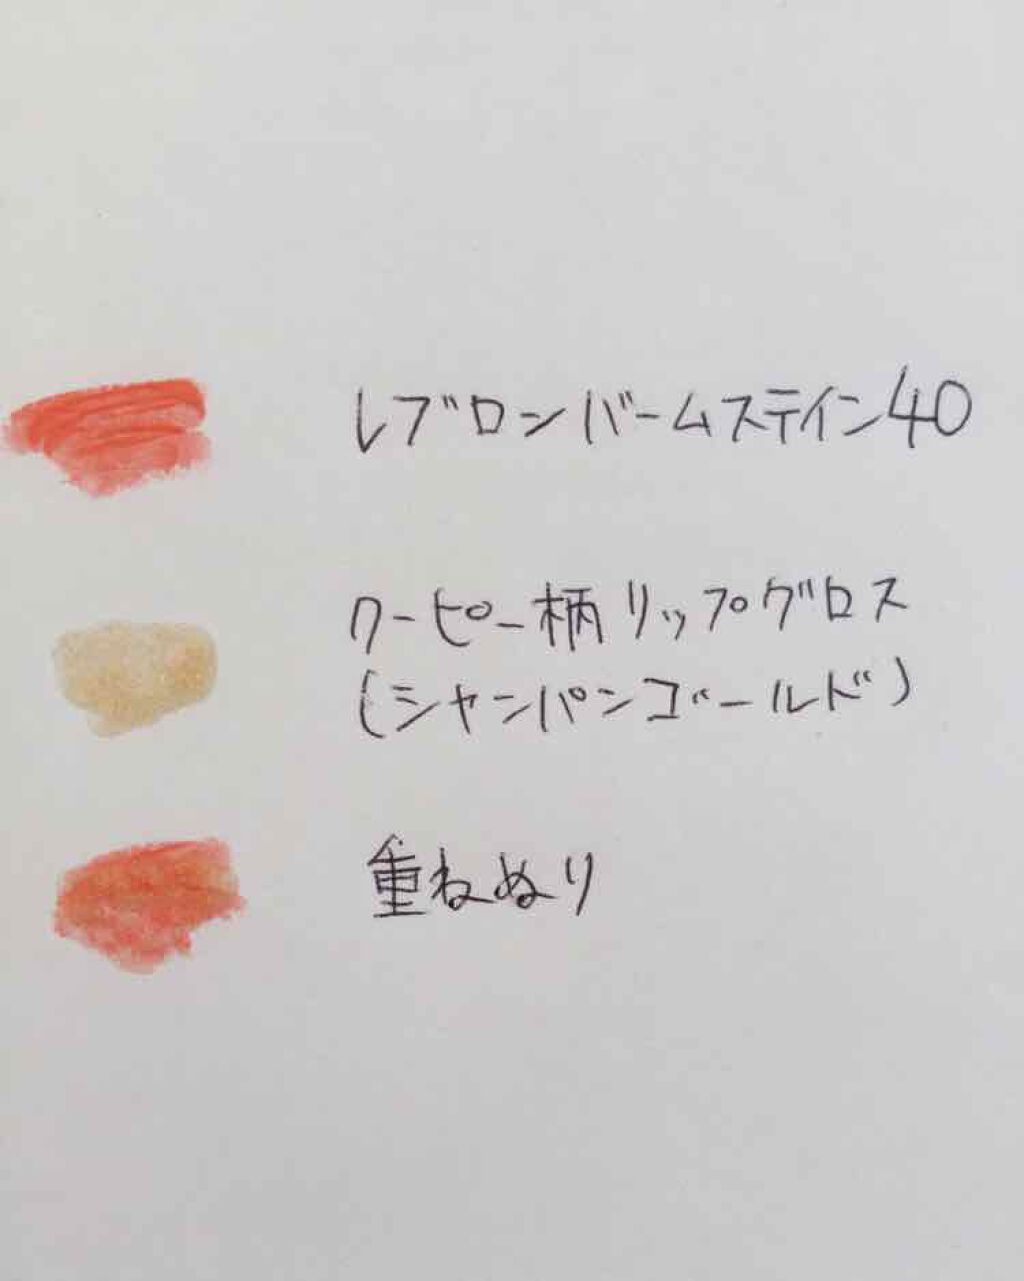 レブロンバームステイン40
クーピー柄リップグロス
(シャンパンゴールド)
重ねぬり